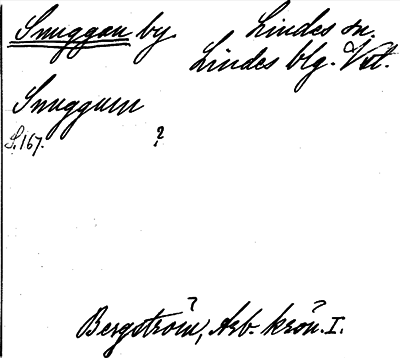 Snuggan by Lindes sn.
Lindes blg. Vstl.
Snuggum
S. 167. ?
Bergström, Arb. krön. I.